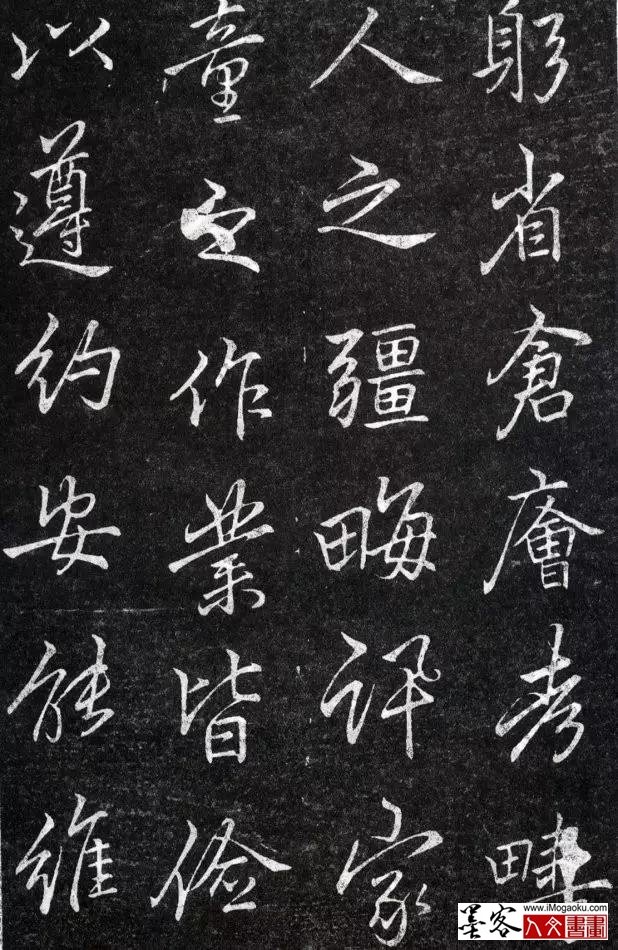 躬省倉廥考疇
人之疆畮評家
童之作業皆儉
以遵約安能維
墨客
www.iMogaoku.com
人文書畫